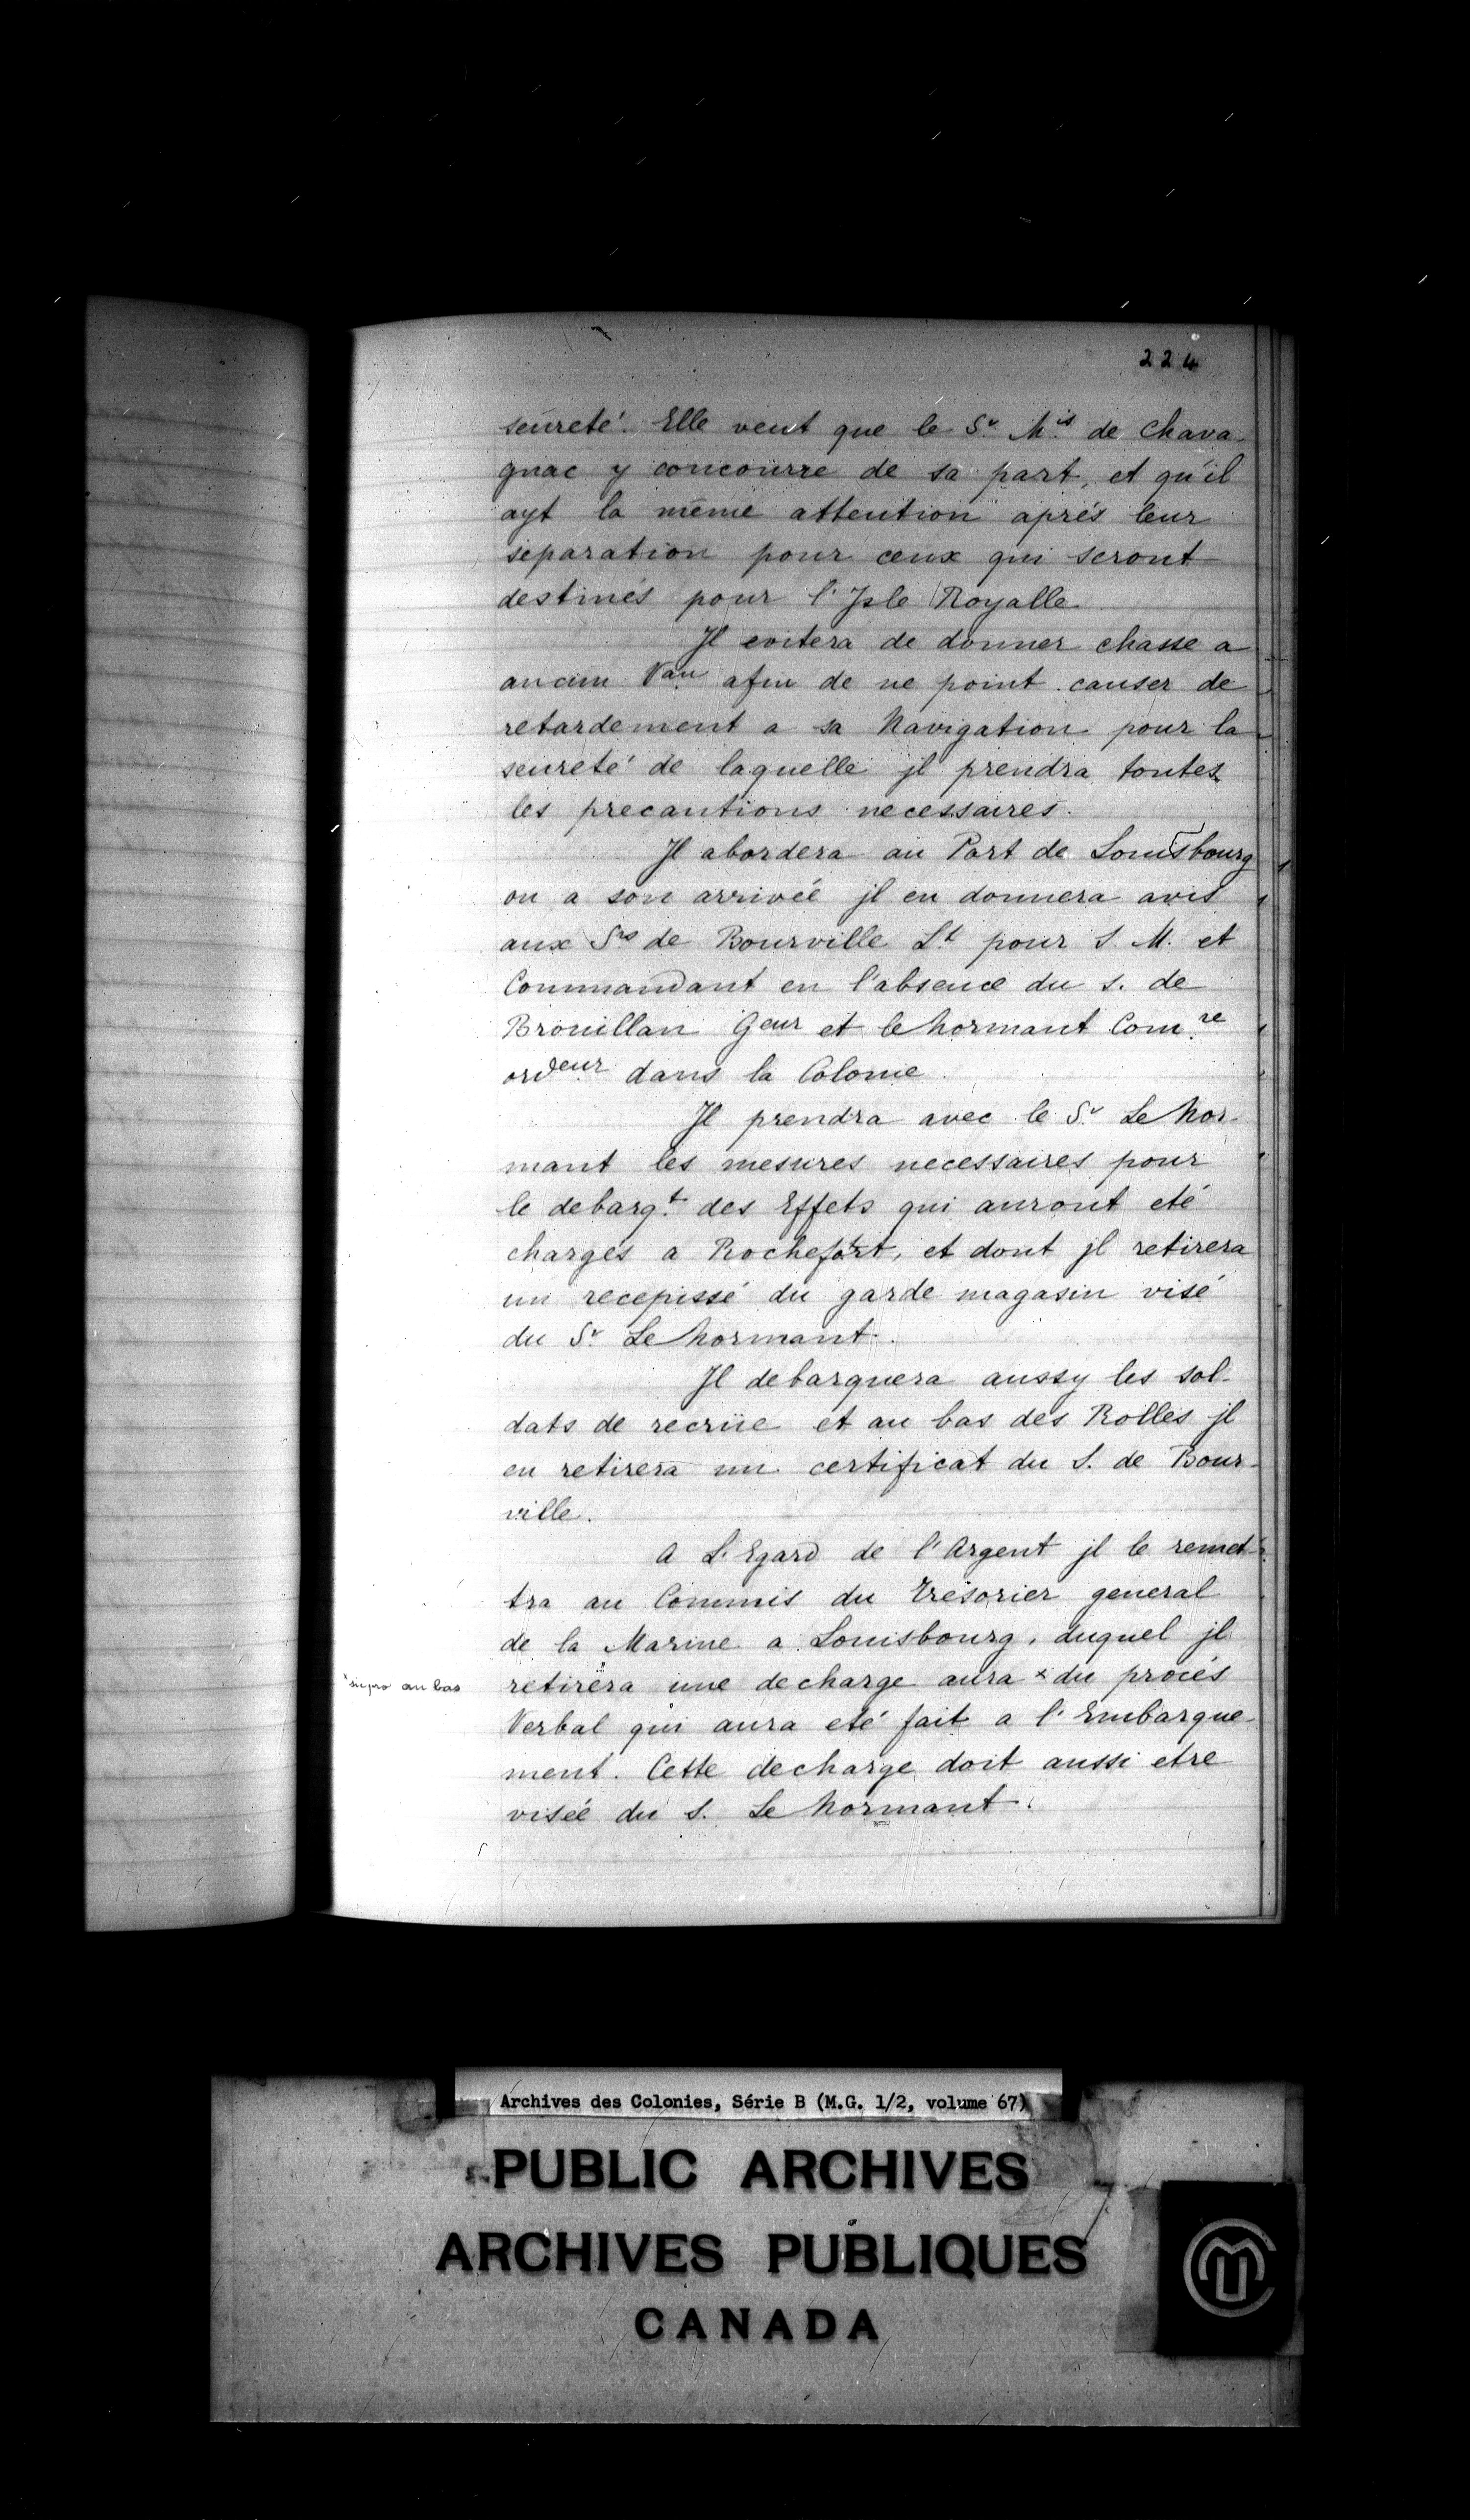 224
seureté. Elle veut que le Sr. Mis. de Chava-
gnac y concourre de sa part, et qu'il
ayt la même attention aprés leur
separation pour ceux qui seront
destinés pour l'Isle Royalle.
Jl evitera de donner chasse a
aucun Vau. afin de ne point causer de
retardement a sa Navigation pour la
seureté de laquelle jl prendra toutes
les precautions necessaires.
Jl abordera au Port de Louisbourg
ou a son arrivée jl en donnera avis
aux Srs de Bourville Lt. pour S. M. et
Commandant en l'absence du s. de
Brouillan Geur et le Normant Com.re
ordeur dans la Colonie.
Jl prendra avec le Sr. Le Nor-
mant les mesures necessaires pour
le debarqt. des Effets qui auront eté
chargés a Rochefort, et dont jl retirera
un recepissé du garde magasin visé
du Sr. Le Normant.
Jl debarquera aussy les sol-
dats de recrüe et au bas des Rolles jl
en retirera un certificat du S. de Bour-
ville.
A L'Egard de l'Argent jl le remet-
tra au Commis du Trésorier general
de la Marine a Louisbourg, duquel jl
retirera une decharge aura x du procés
x au bas
Verbal qui aura eté fait a l'Embarque-
ment. Cette decharge doit aussi etre
visée du s. Le Normant.
Archives des Colonies, Série B (M.G. 1/2, volume 67)
PUBLIC ARCHIVES
ARCHIVES PUBLIQUES
CANADA